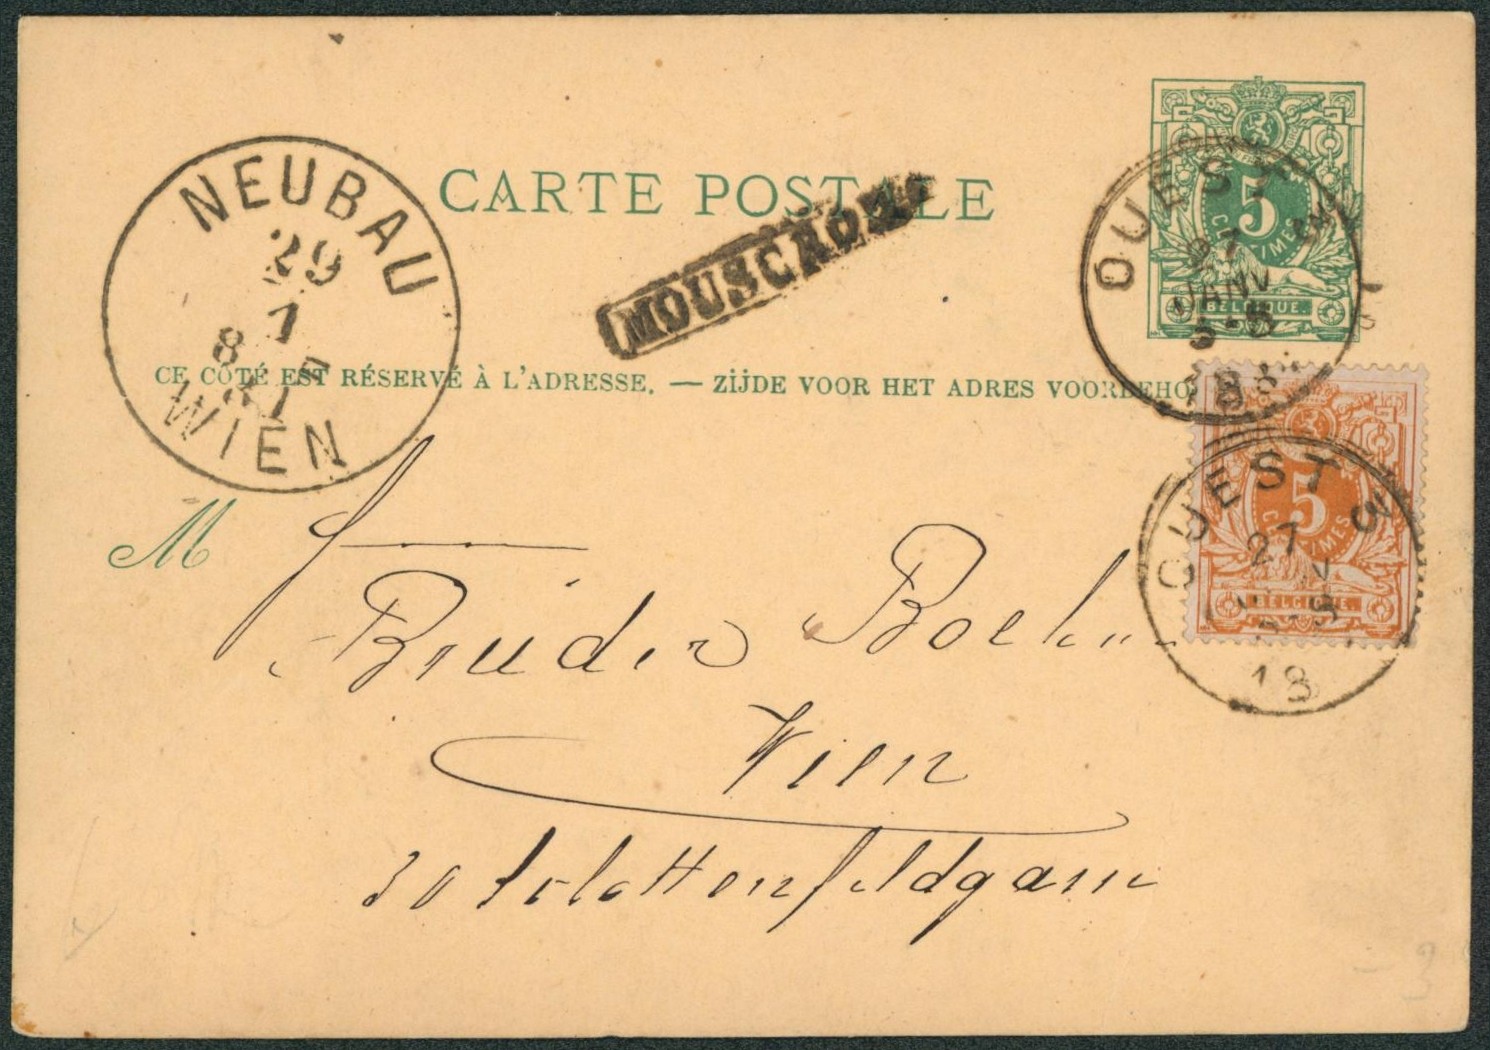 CARTE POSTALE
MOUSCRON
NEUBAU
29
1
8 M
81
WIEN
5
CENTIMES
BELGIQUE
OUEST 3
27
JANV
18
CE CÔTÉ EST RÉSERVÉ À L'ADRESSE. — ZIJDE VOOR HET ADRES VOORBEHO
5
CENTIMES
BELGIQUE.
OUEST 3
27
18
M
Brüder Boehm
Wien
30 Schottenfeldgasse